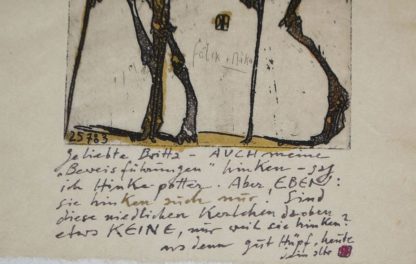 félix-mika
25783
geliebte Britta – AUCH meine
"Beweisführungen" hinken – sag
ich Hinkepötter. Aber EBEN:
sie hinken auch nur! Sind
diese niedlichen Kerlchen da oben
etwa KEINE, nur weil sie hinken?
na denn gut Hüpf, heute